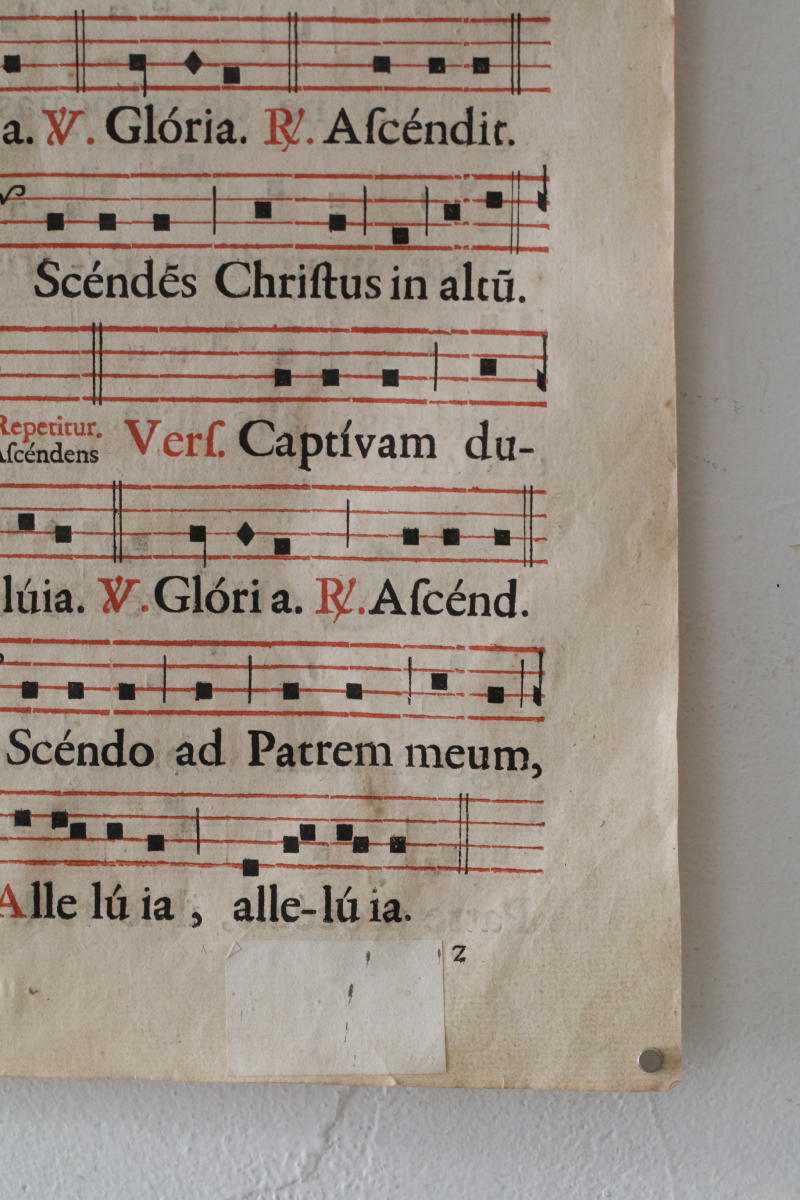 a. ℣. Glória. ℟. Aſcéndit.
Scéndẽs Chriſtus in altũ.
Repetitur.
Aſcéndens
Verſ. Captívam du-
lúia. ℣. Glória. ℟. Aſcénd.
Scéndo ad Patrem meum,
Alle lú ia , alle-lú ia.
z